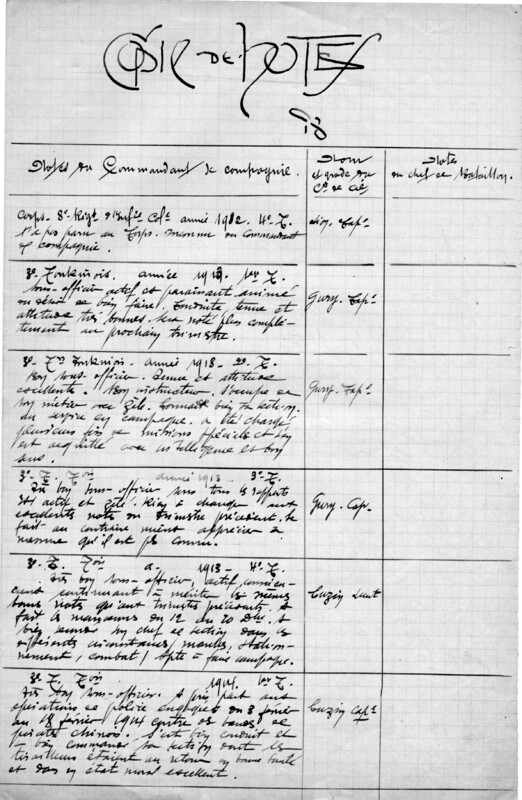 COPIE DE NOTES
Notes du Commandant de compagnie.
Nom
et grade du
Ct de Cie
Notes
du chef de Bataillon.
Corps. 8e Régt d'Infie Cole année 1912. 4e T.
n'a pas paru au Corps. Commandant
de compagnie.
Capne
3e Tonkinois. année 1913. 1er T.
Sous-officier actif et paraissant animé
du désir de bien faire. Conduite, tenue et
attitude très bonnes. Sera noté plus complè-
tement au prochain trimestre.
Gury. Capne
3e Tonkinois. année 1913 - 2e T.
Bon sous-officier. Tenue et attitude
excellente. Bon instructeur, s'occupe de
son métier avec zèle. Connaît bien
du service en campagne. a été chargé
plusieurs fois de missions spéciales et s'en
est acquitté avec intelligence et bon
sens.
Gury. Capne
3e T. Tois année 1913 3e T.
Très bon sous-officier sous tous les rapports
actif et zélé. Rien à changer aux
excellentes notes du trimestre précédent. Se
fait au contraire mieux apprécier à
mesure qu'il est plus connu.
Gury. Cap.
3e T. Tois a. 1913 - 4e T.
Très bon sous-officier, actif, conscien-
cieux continuant à mériter les mêmes
bonnes notes qu'aux trimestres précédents. A
fait les manœuvres du 12 au 20 Dbre. A
bien secondé son chef de section dans les
différentes circonstances, marches, station-
nement, combat, Apte à faire campagne.
Cuzin Lieut
3e T. Tois 1914. 1er T.
Très bon sous-officier. A pris part aux
opérations de police engagées du 3 février
au 18 février 1914 contre des bandes de
pirates chinois. S'est bien conduit et
a bien commandé sa section dont les
tirailleurs étaient au retour en bonne santé
et dans un état moral excellent.
Cuzin Capne